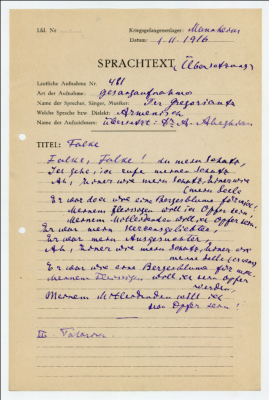 Lfd. Nr.
Kriegsgefangenenlager: Mannheim
Datum: 1.11.1916
SPRACHTEXT (Übersetzung)
Lautliche Aufnahme Nr. 481
Art der Aufnahme: Gesangaufnahme
Name des Sprechers, Sängers, Musikers: Ter Gregorianz
Welche Sprache bzw. Dialekt: Armenisch
Name des Aufzeichners: Übersetzt: Dr. A. Abeghian
TITEL: Falke
Falke, Falke! du mein Schatz,
Ich gehe, ich rufe meinen Schatz.
Ach, immer wie mein Schatz, immer wie
(mein Seele
Er war doch wie eine Bergesblume für mich,
Meinem will ich Opfer sein,
Meinem will ich Opfer sein.
Er war mein Herzensgeliebter,
Er war mein Ausgesuchter,
Ach, immer wie mein Schatz, immer wie
meine Seele
Er war wie eine Bergesblume für mich.
Meinem will ich sein Opfer
werden,
Meinem will ich
sein Opfer sein!
III